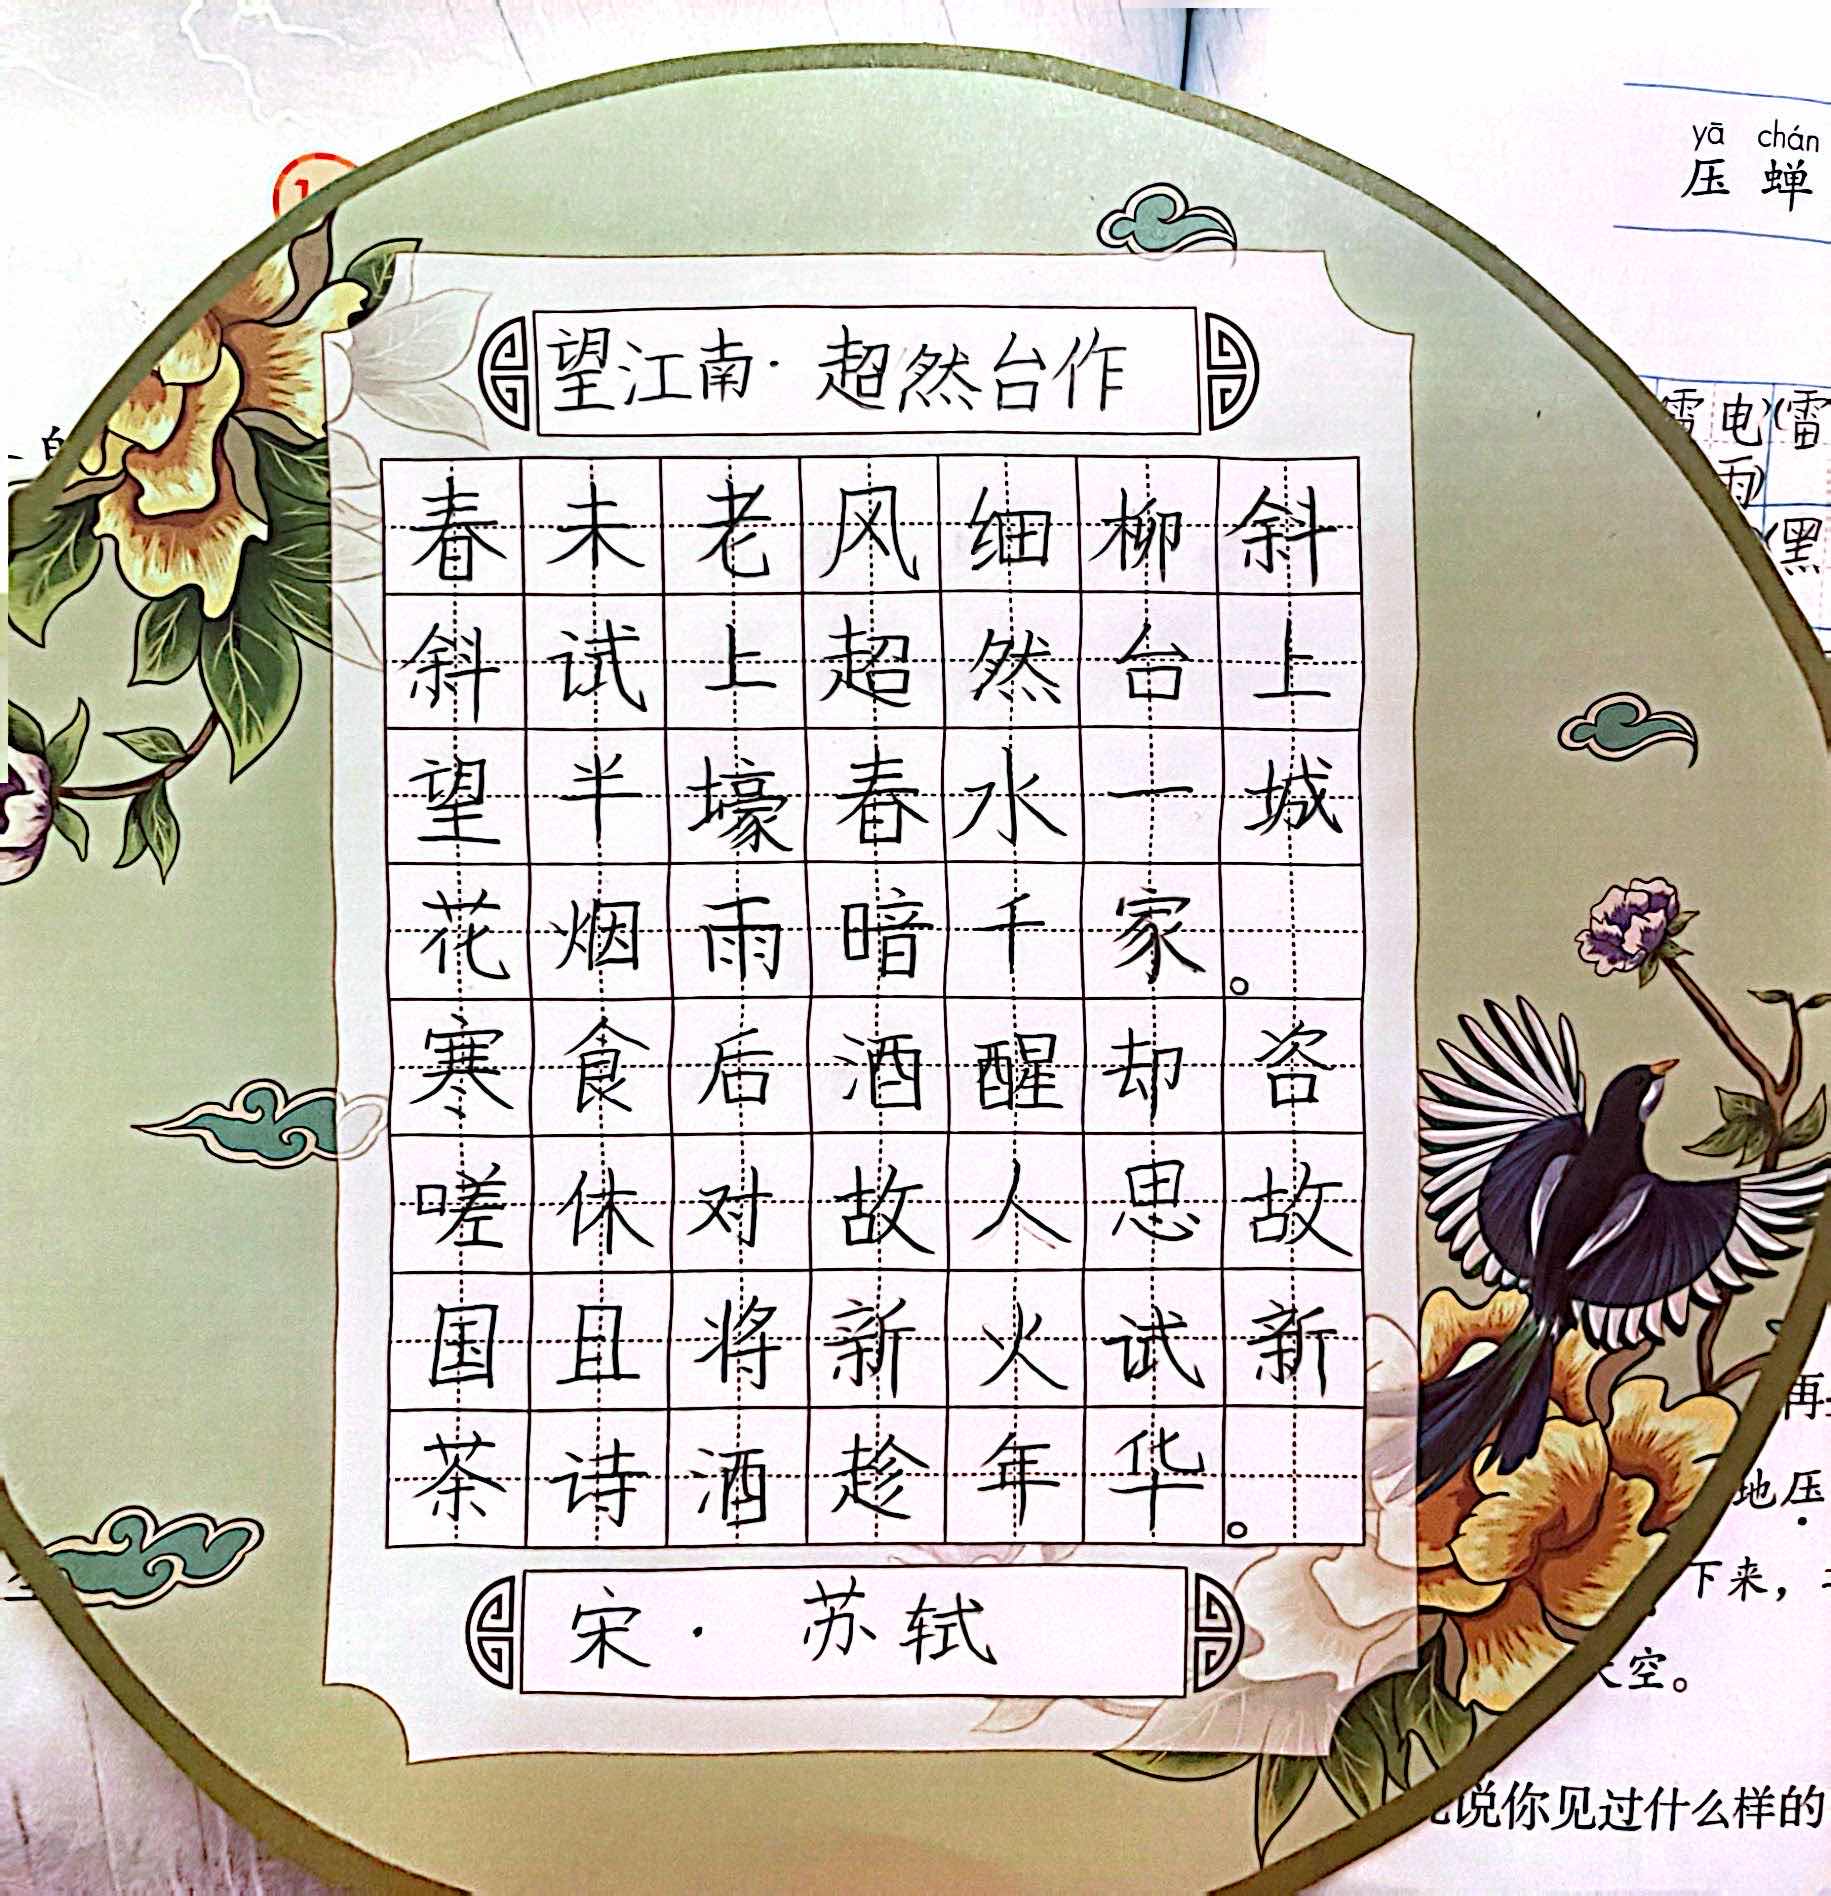 yā chán
压 蝉
望江南·超然台作
电)(雷
雨)
(黑
春未老风细柳斜
斜试上超然台上
望半壕春水一城
花烟雨暗千家。
寒食后酒醒却咨
嗟休对故人思故
国且将新火试新
茶诗酒趁年华。
宋·苏轼
再
地压
下来，
空。
说你见过什么样的